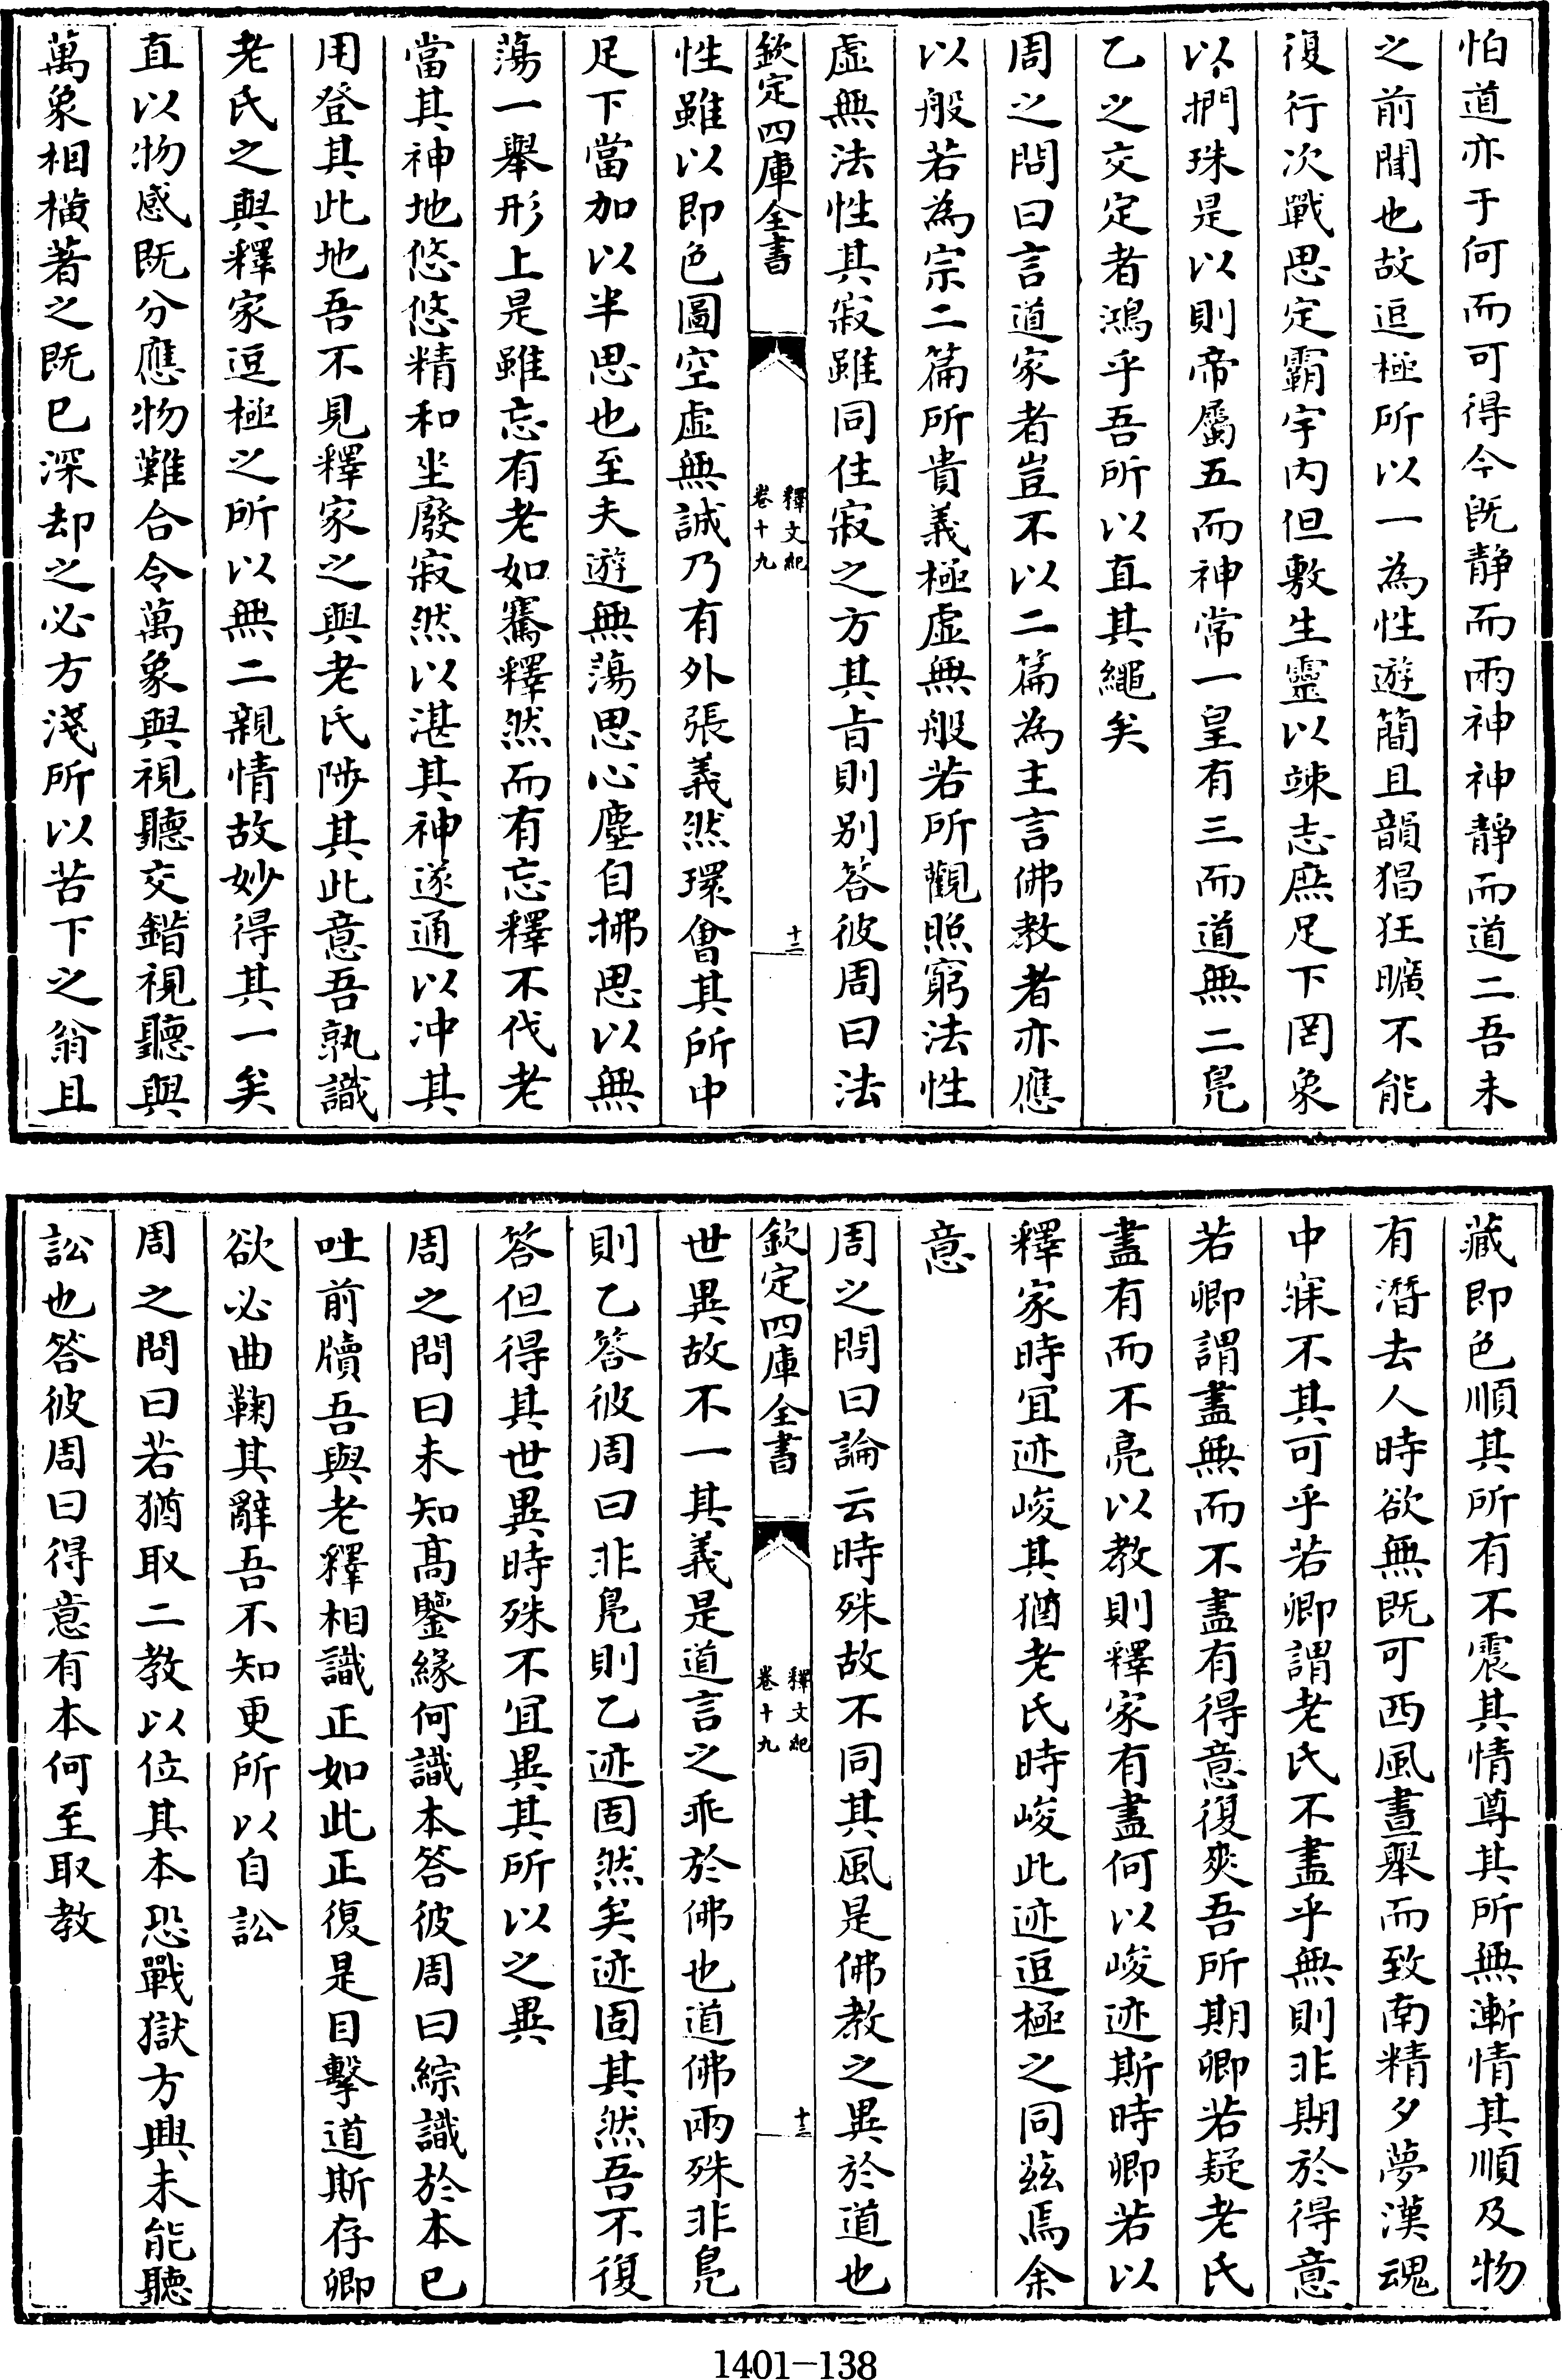 怕道亦于何而可得今既静而兩神神靜而道二吾未
之前聞也故逗極所以一為性遊簡且韻猖狂曠不能
復行次戰思定霸宇内但敷生靈以竦志庶足下罔象
以捫珠是以則帝屬五而神常一皇有三而道無二鳬
乙之交定者鴻乎吾所以直其繩矣
周之問曰言道家者豈不以二篇為主言佛教者亦應
以般若為宗二篇所貴義極虛無般若所觀照窮法性
虛無法性其寂雖同住寂之方其㫖則别答彼周曰法
欽定四庫全書
釋文紀
卷十九
十二
性雖以即色圖空虛無誠乃有外張義然環會其所中
足下當加以半思也至夫遊無蕩思心塵自拂思以無
蕩一舉形上是雖忘有老如騫釋然而有忘釋不伐老
當其神地悠悠精和坐廢寂然以湛其神遂通以冲其
用登其此地吾不見釋家之與老氏陟其此意吾孰識
老氏之與釋家逗極之所以無二親情故妙得其一矣
直以物感既分應物難合令萬象與視聽交錯視聽與
萬象相横著之既已深却之必方淺所以苦下之翁且
藏即色順其所有不震其情尊其所無漸情其順及物
有潛去人時欲無既可西風晝舉而致南精夕夢漢魂
中寐不其可乎若卿謂老氏不盡乎無則非期於得意
若卿謂盡無而不盡有得意復爽吾所期卿若疑老氏
盡有而不亮以教則釋家有盡何以峻迹斯時卿若以
釋家時宜迹峻其猶老氏時峻此迹逗極之同兹焉余
意
周之問曰論云時殊故不同其風是佛教之異於道也
欽定四庫全書
釋文紀
卷十九
十三
世異故不一其義是道言之乖於佛也道佛兩殊非鳬
則乙答彼周曰非鳬則乙迹固然矣迹固其然吾不復
答但得其世異時殊不宜異其所以之異
周之問曰未知高鑒緣何識本答彼周曰綜識於本已
吐前牘吾與老釋相識正如此正復是目擊道斯存卿
欲必曲鞠其辭吾不知更所以自訟
周之問曰若猶取二教以位其本恐戰獄方興未能聽
訟也答彼周曰得意有本何至取教
1401-138